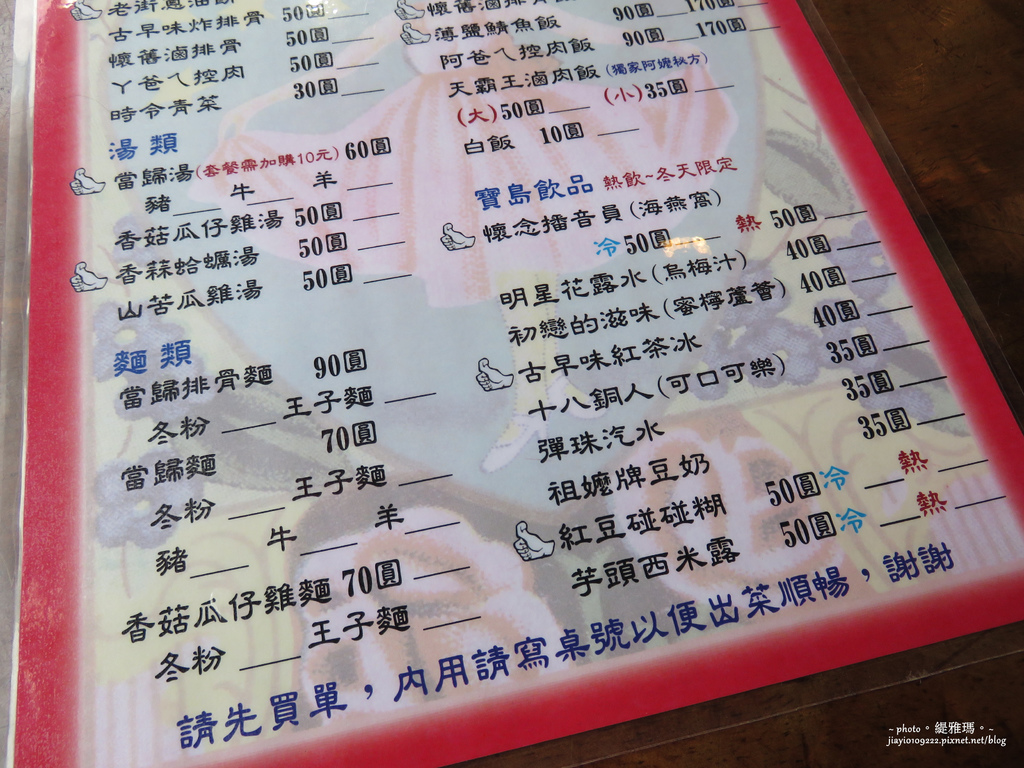 古早味炸排骨 50圓
懷舊滷排骨 50圓
ㄚ爸ㄟ控肉 50圓
時令青菜 30圓
湯類
當歸湯(套餐需加購10元) 60圓
豬 牛 羊
香菇瓜仔雞湯 50圓
香蒜蛤蠣湯 50圓
山苦瓜雞湯 50圓
麵類
當歸排骨麵 90圓
冬粉 王子麵
當歸麵 70圓
冬粉 王子麵
豬 牛 羊
香菇瓜仔雞麵 70圓
冬粉 王子麵
薄鹽鯖魚飯 90圓 170圓
阿爸ㄟ控肉飯 90圓 170圓
天霸王滷肉飯(獨家阿嬤秘方)
(大)50圓 (小)35圓
白飯 10圓
寶島飲品 熱飲~冬天限定
懷念播音員(海燕窩)
冷50圓 熱 50圓
明星花露水(烏梅汁) 40圓
初戀的滋味(蜜檸蘆薈) 40圓
古早味紅茶冰 40圓
十八銅人(可口可樂) 35圓
彈珠汽水 35圓
祖嬤牌豆奶 35圓
紅豆碰碰糊 50圓冷 熱
芋頭西米露 50圓冷 熱
請先買單，內用請寫桌號以便出菜順暢，謝謝
~ photo。緹雅瑪。~
jiayio109222.pixnet.net/blog